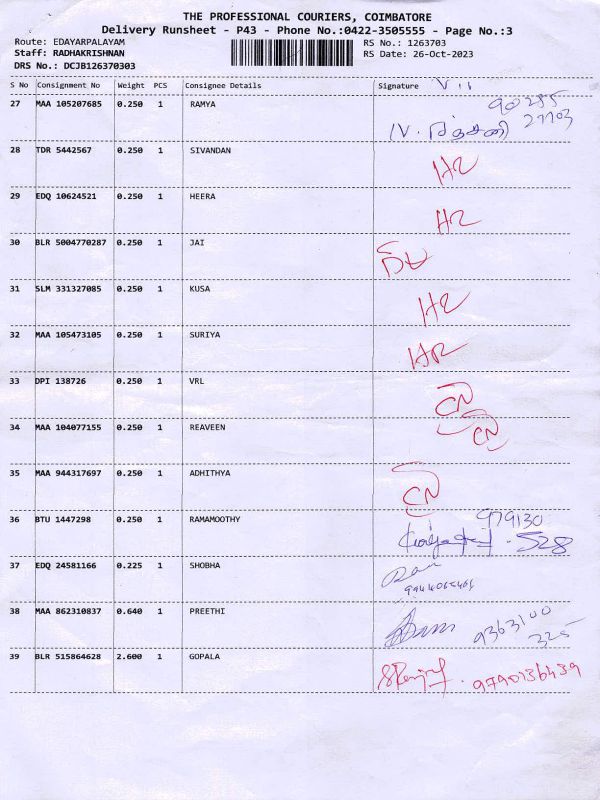 THE PROFESSIONAL COURIERS, COIMBATORE
Delivery Runsheet - P43 - Phone No.:0422-3505555 - Page No.:3
Route: EDAYARPALAYAM RS No.: 1263703
Staff: RADHAKRISHNAN RS Date: 26-Oct-2023
DRS No.: DCJB126370303
S No Consignment No Weight PCS Consignee Details Signature
27 MAA 105207685 0.250 1 RAMYA 90285
27703
28 TDR 5442567 0.250 1 SIVANDAN
29 EDQ 10624521 0.250 1 HEERA
30 BLR 5004770287 0.250 1 JAI
31 SLM 331327085 0.250 1 KUSA
32 MAA 105473105 0.250 1 SURIYA
33 DPI 138726 0.250 1 VRL
34 MAA 104077155 0.250 1 REAVEEN
35 MAA 944317697 0.250 1 ADHITHYA
36 BTU 1447298 0.250 1 RAMAMOOTHY 979130
528
37 EDQ 24581166 0.225 1 SHOBHA
38 MAA 862310837 0.640 1 PREETHI 9363100
325
39 BLR 515864628 2.600 1 GOPALA 9790136439